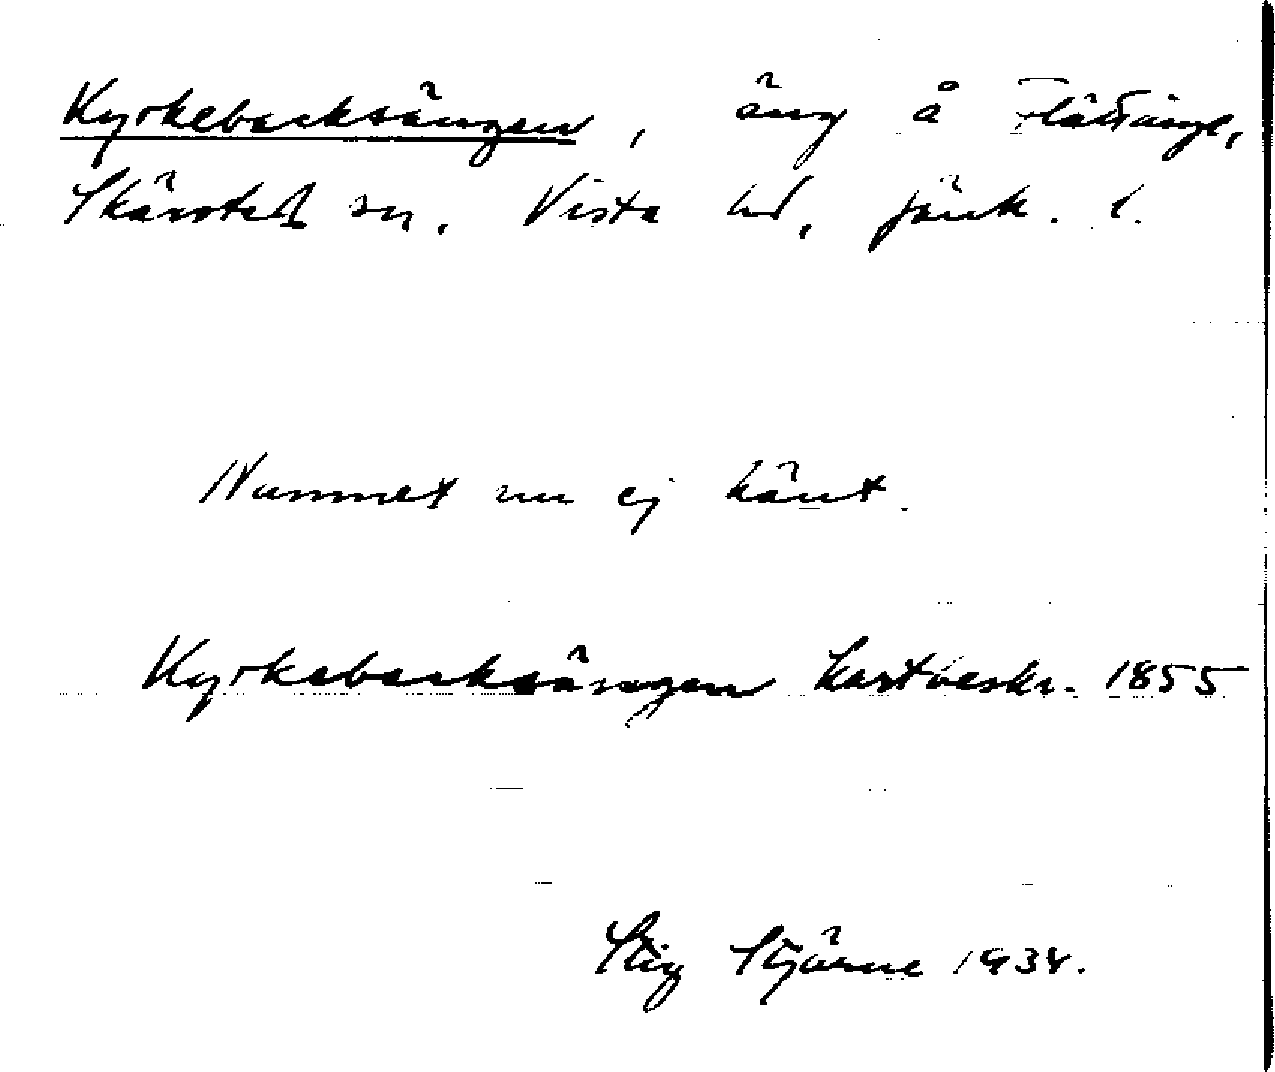 Kyrkebacksängen, äng å Flättinge,
Skärstad sn, Vista hd, Jönk. l.
Namnet nu ej känt.
Kyrkebacksängen kartbeskr. 1855
Stig Stjärne 1934.